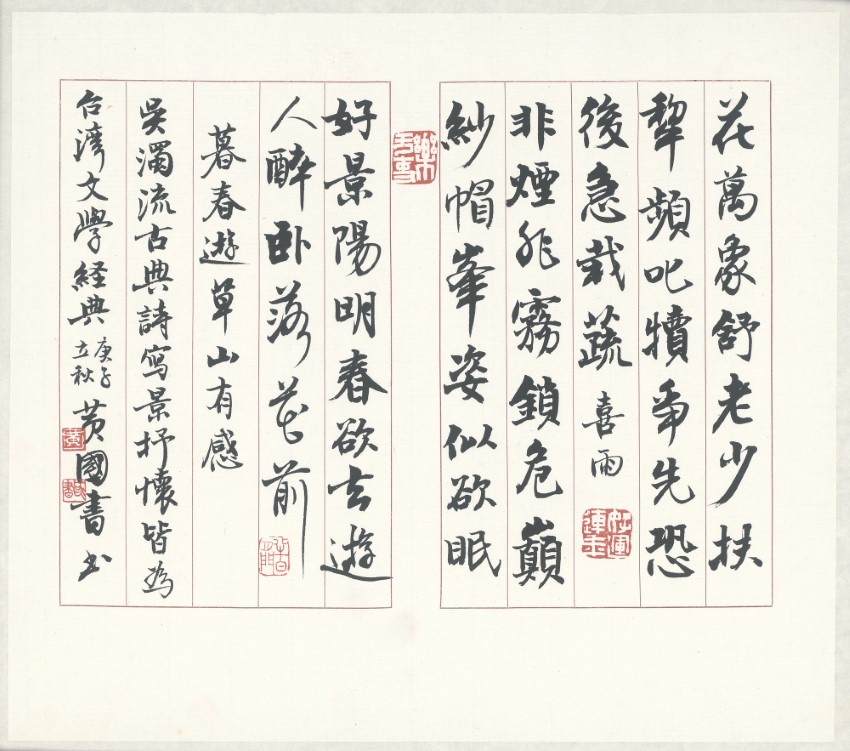 花萬象舒老少扶
犂頻叱犢爭先恐
後急栽蔬 喜雨
非煙非霧鎖危巔
紗帽峯姿似欲眠
好景陽明春欲去遊
人醉卧落花前
暮春遊草山有感
吳濁流古典詩寫景抒懷皆為
台灣文學經典 庚子立秋 黃國書 書